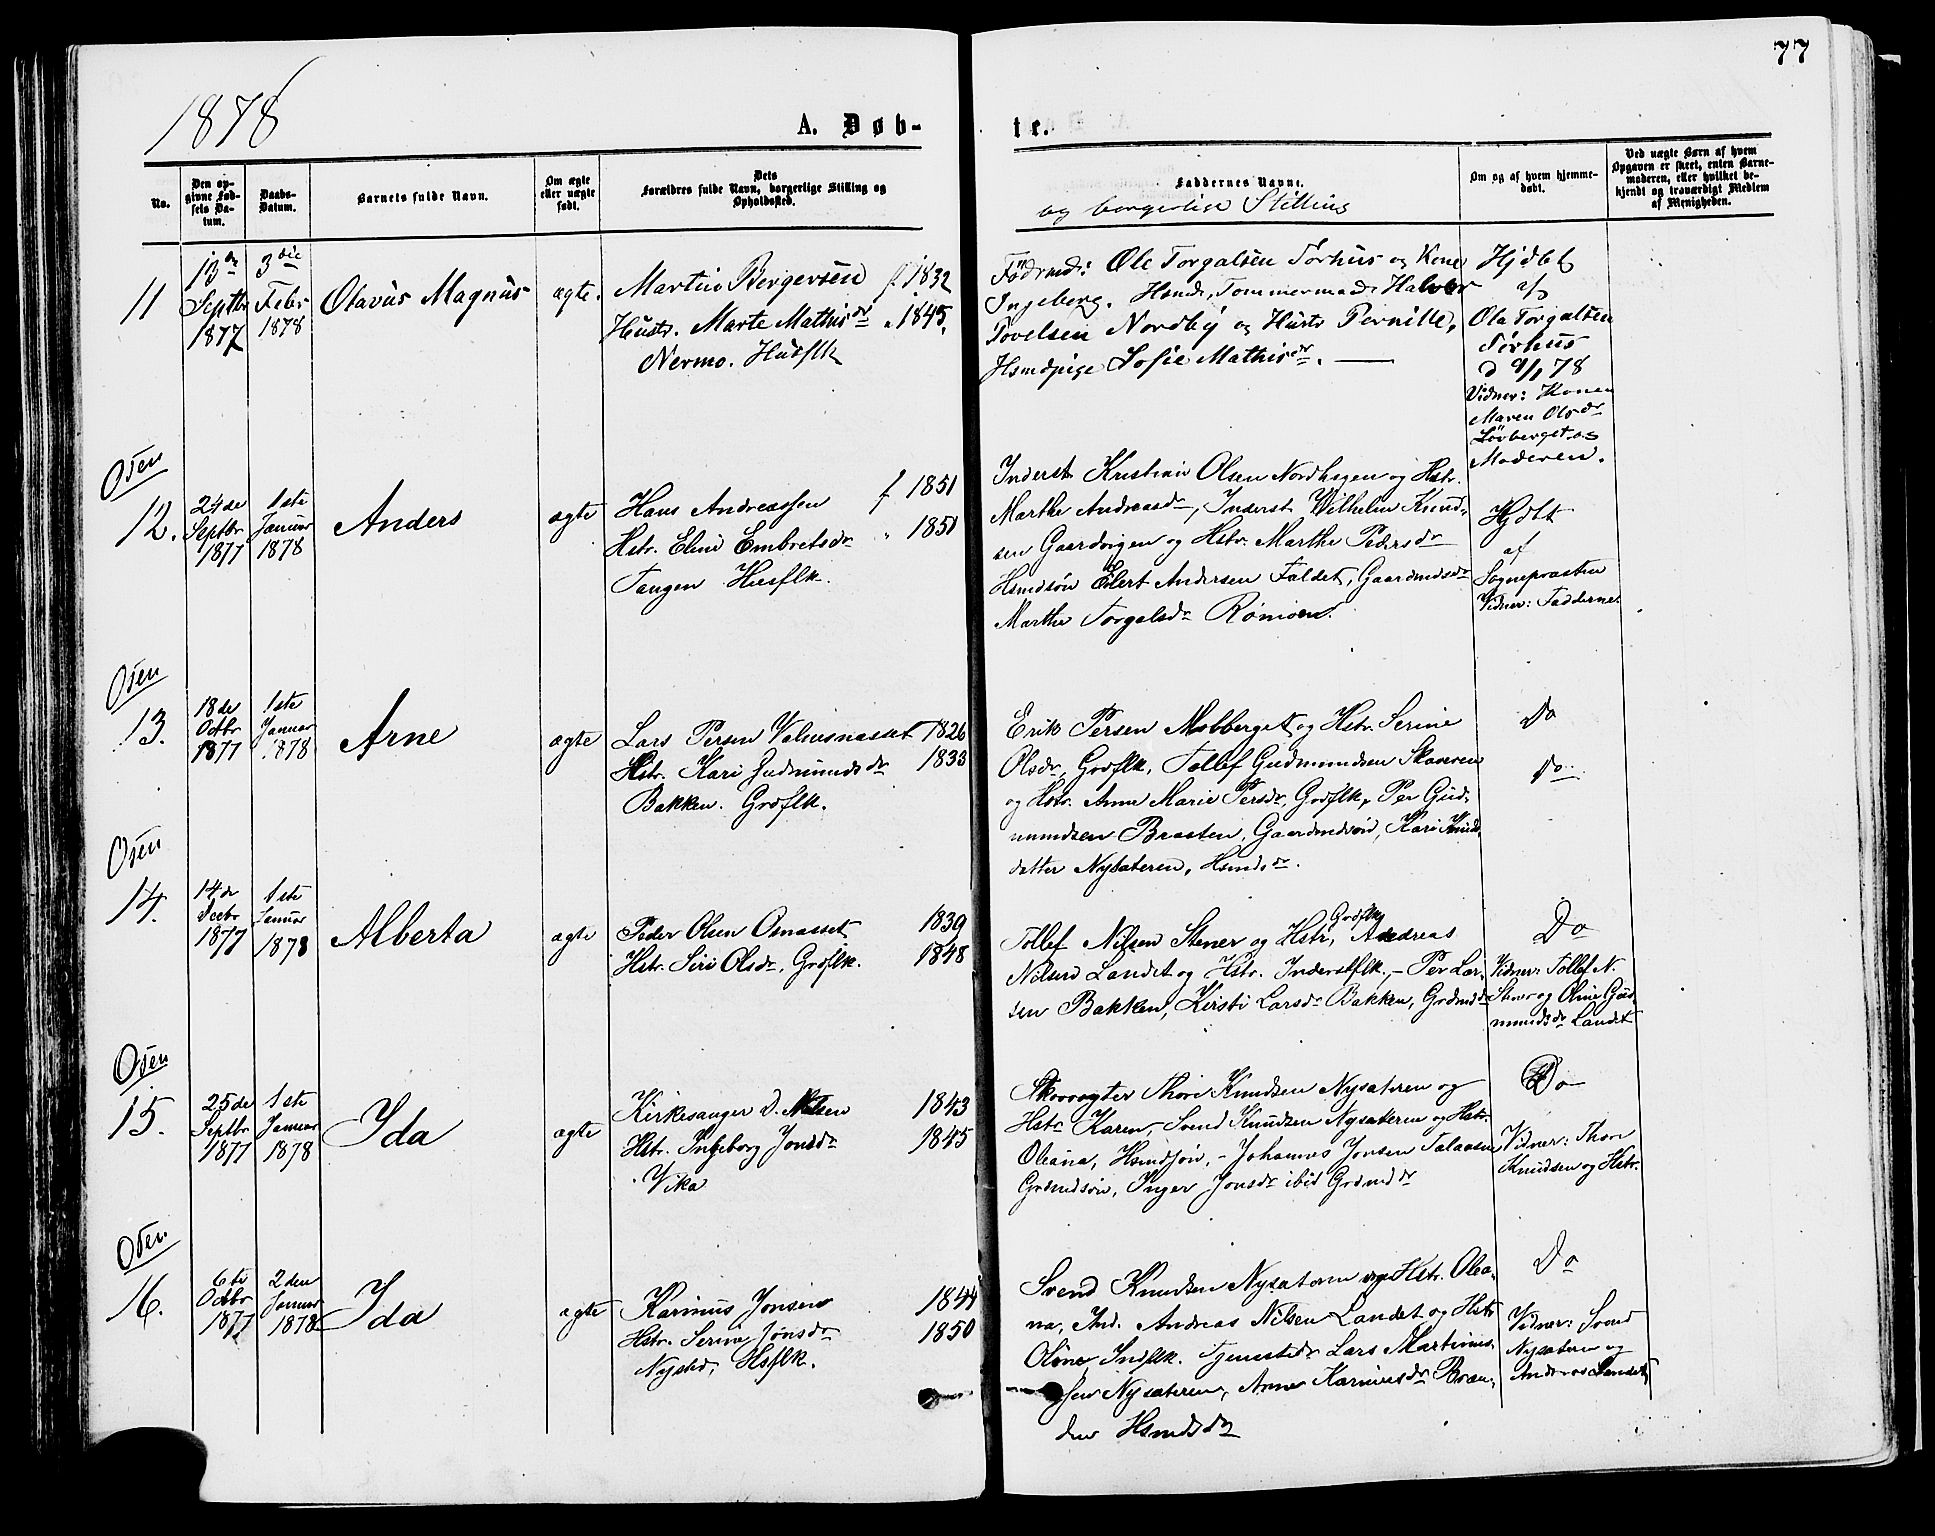 77
1878
A. Døb-
te.
No.
Den op-
givne Fød-
sels Da-
tum.
Daabs-
Datum.
Barnets fulde Navn.
Om ægte
eller uægte
født.
Dets
Forældres fulde Navn, borgerlige Stilling og
Opholdssted.
Faddernes Navne.
og borgerlige Stilling
Om og af hvem hjemme-
døbt.
Ved uægte Børn af hvem
Opgaven er skeet, enten Barne-
moderen, eller hvilket be-
kjendt og troværdigt Medlem
af Menigheden.
11
13de
Septbr
1877
3die
Febr
1878
Olavus Magnus
ægte.
Martin Bergersen f 1832
Hustr. Marte Mathisdr " 1845,
Nermo. Husflk
Födrmd: Ole Torgalsen Sörhus og Kone
Ingeborg. Hsmd, Tømmermand Halvor
Tovelsen Nordby og Hustr Pernille,
Hsmdpige Sofie Mathisdr.
Hjdbt
af
Ola Torgalsen
Sörhus
d 9/1 78
Vidner: Konen
Maren Olsdr
Lövberget og
Moderen.
Osen
12.
24de
Septbr
1877
1ste
Januar
1878
Anders
ægte
Hans Andreassen f 1851
Hstr. Elini Embretsdr " 1851
Tangen Husflk.
Inderst Kristian Olsen Nordhagen og Hstr.
Marthe Andreasdr, Inderst Wilhelm Knud-
sen Gaardvigen og Hstr. Marthe Pedersdr
Hsmdsøn Eilert Andersen Faldet, Gaardmdsdr
Marthe Torgalsdr Rømoen.
Hjdbt
af
Sognepræsten
Vidner: Fadderne
Osen
13.
18de
Octbr
1877
1ste
Januar
1878
Arne
ægte
Lars Persen Valmsnæsset 1826
Hstr. Kari Gudmundsdr 1833
Bakken. Grdflk.
Erik Persen Mobberget og Hstr. Serine
Olsdr, Grdflk, Tollef Gudmundsen Skaaren
og Hstr. Anne Marie Persdr, Grdflk, Per Gud-
mundsen Braaten, Gaardmdsøn, Kari Knuds-
datter Nysæteren, Hsmdsdr.
Do
Do
Osen
14.
14de
Decbr
1877
1ste
Januar
1878
Alberta
ægte
Peder Olsen Osnæsset 1839
Hstr. Siri Olsdr, Grdflk. 1848
Grdflk
Tollef Nilsen Stener og Hstr, Andreas
Nilsen Landet og Hstr. Inderstflk, - Per Lar-
sen Bakken, Kirsti Larsdr Bakken, Grdmdsdr
Do
Vidner: Tollef N.
Stener og Oline Gud-
mundsdr Landet
Osen
15.
25de
Septbr
1877
1ste
Januar
1878
Ida
ægte
Kirkesanger D. Nilsen 1843
Hstr. Ingeborg Jonsdr 1845
Vika
Skovvogter Thore Knudsen Nysæteren og
Hstr Karen, Svend Knudsen Nysæteren og Hstr.
Oleana, - Johannes Jonsen
Grdmdsøn, Inger Jonsdr ibid Grdmddr
Do
Vidner: Thore
Knudsen og Hstr.
Osen
16.
6te
Octbr
1877
2den
Januar
1878
Ida
ægte
Karinus Jonsen 1844
Hstr. Serine Jonsdr 1850
Nysted, Hsflk.
Svend Knudsen Nysæteren og Hstr. Olea-
na, Ind. Andreas Nilsen Landet og Hstr
Oline, Indflk. Tjenestedr Lars Martinus-
sen Nysæteren, Anne Karinesdr Bræn-
den Hsmdsdr
Do
Vidner: Svend
Nysæteren og
Andreas Landet